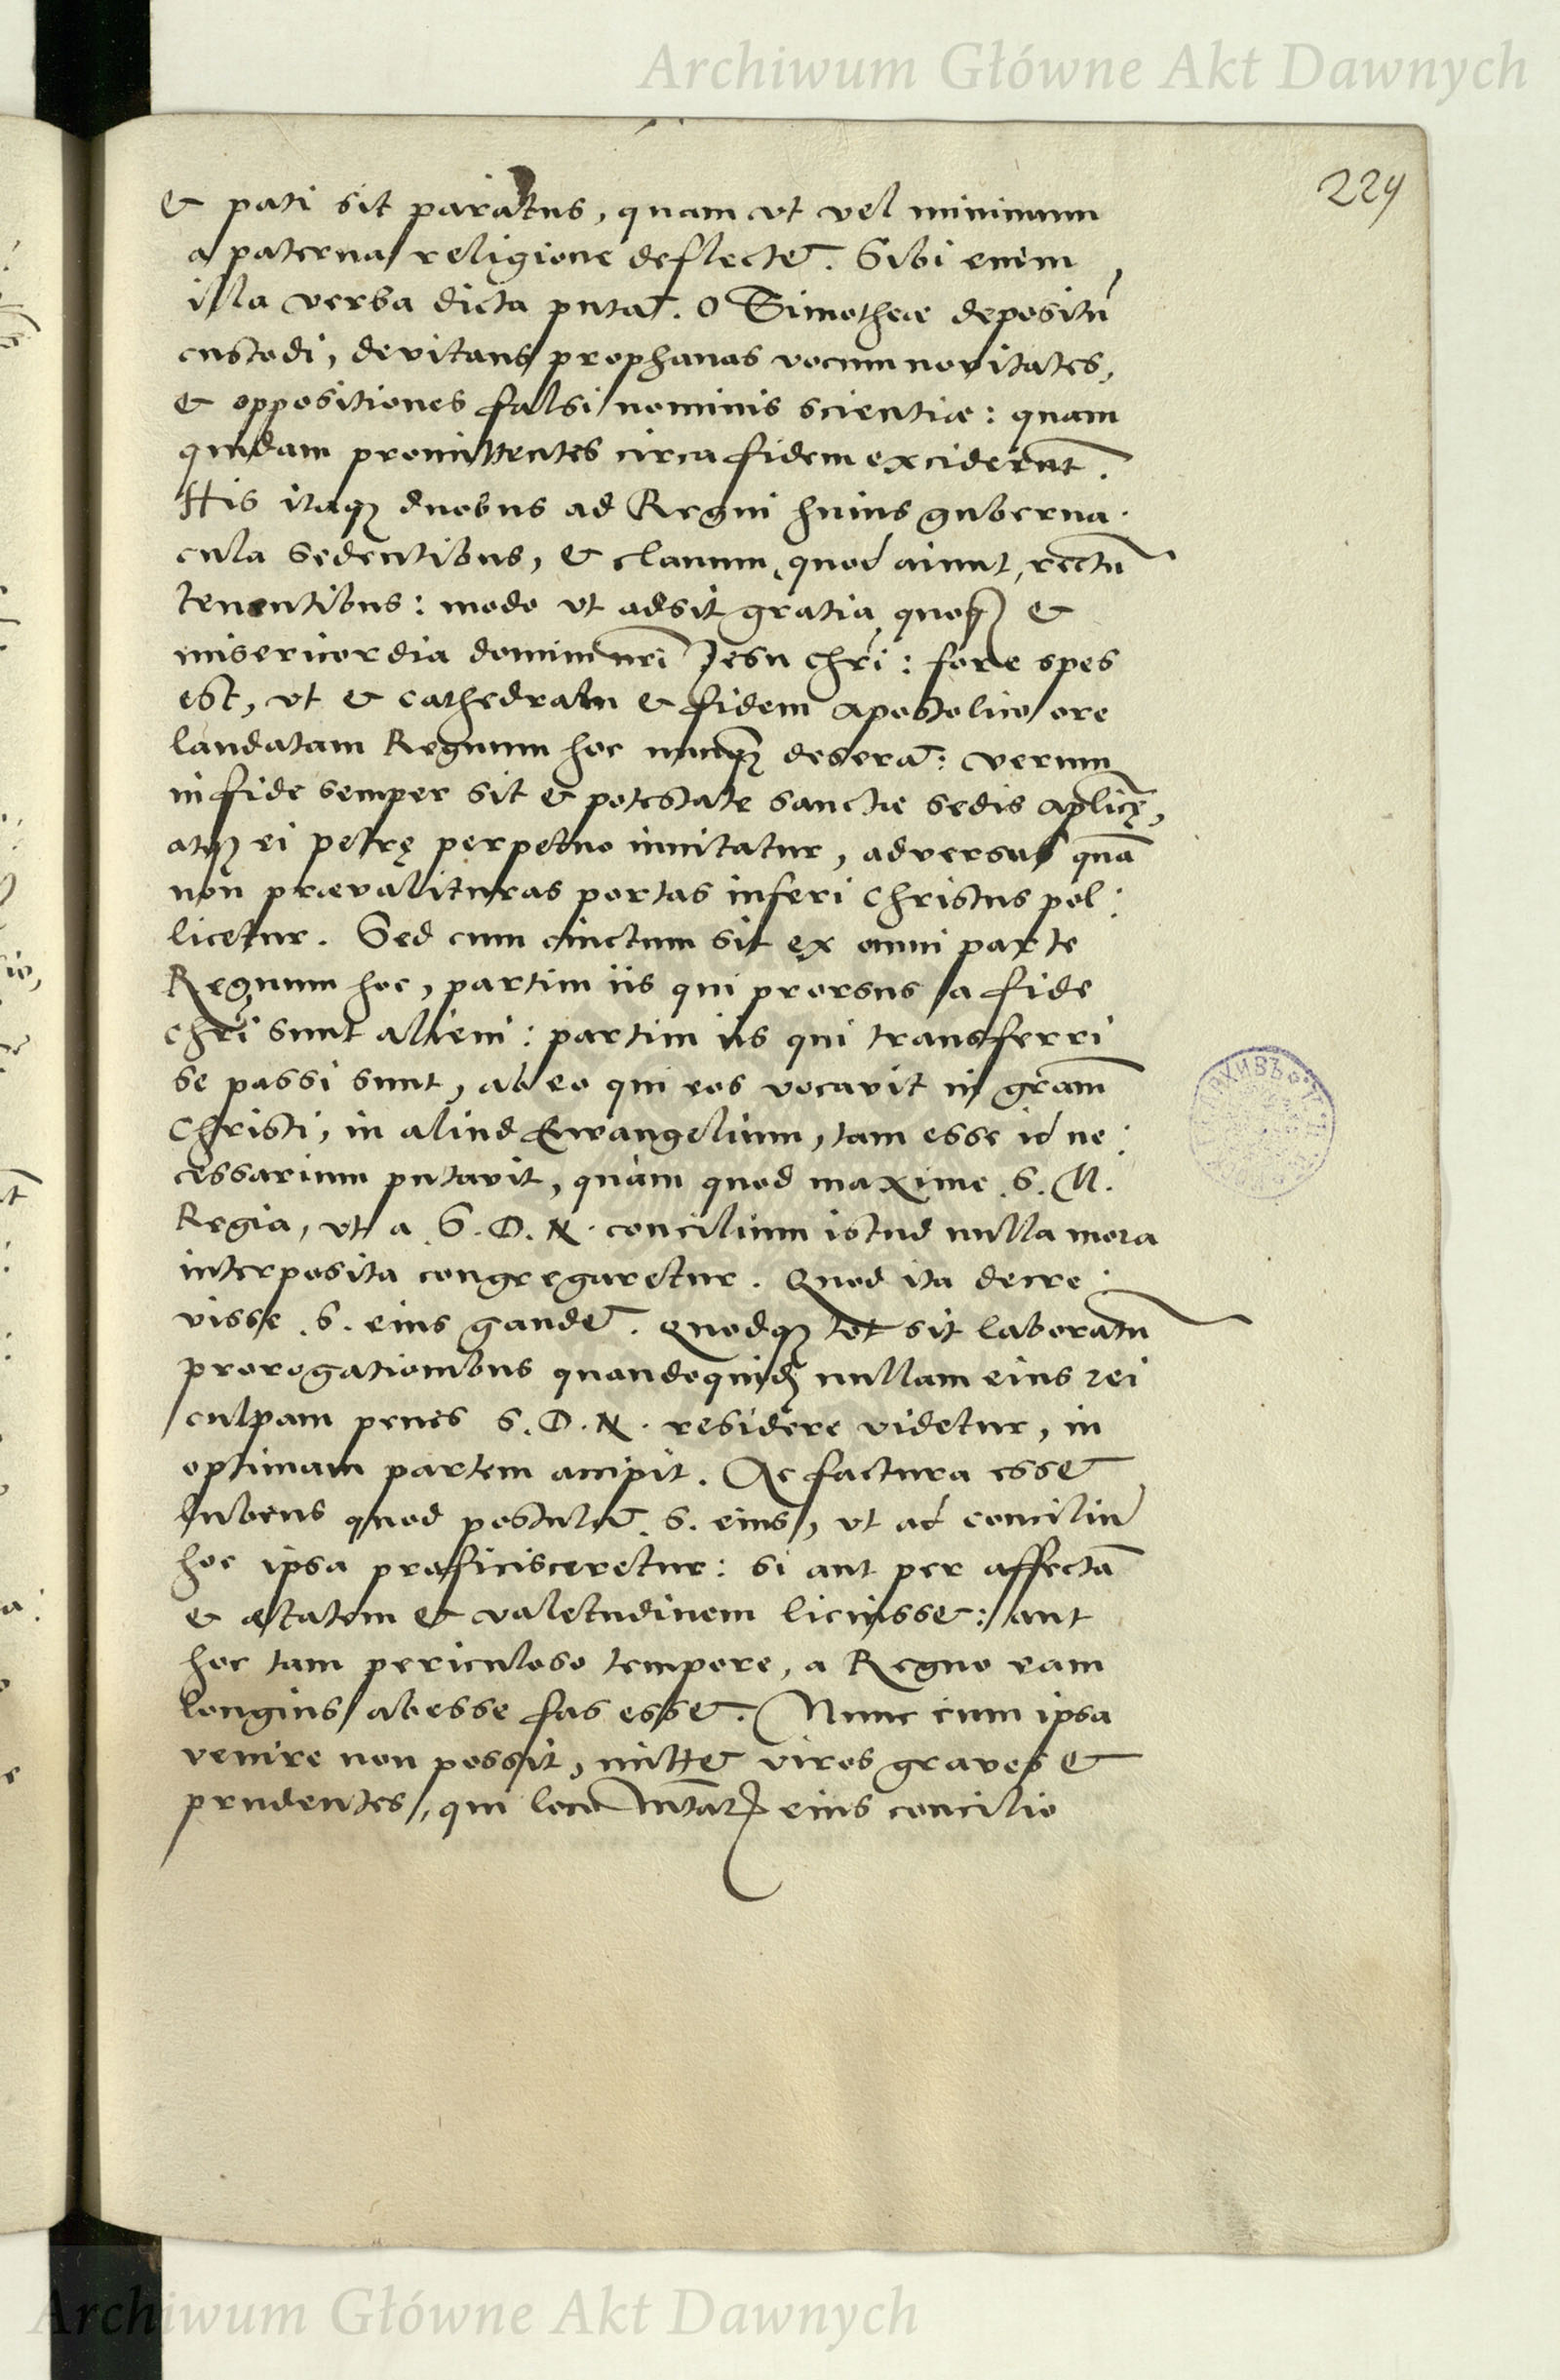 Archiwum Główne Akt Dawnych
229
& pati sit paratus, quam ut vel minimum
a paterna religione deflectet̄. Sibi enim
illa verba dicta putat̄. O Timotheæ depositū
custodi, devitans prophanas vocum novitates,
& oppositiones falsi nominis scientiæ: quam
quidam promittentes circa fidem exciderūt.
His itaqȝ duobus ad Regni huius guberna:
cula sedentibus, & clavum, quod aiunt, rectū
tenentibus: modo ut adsit gratia quoqȝ &
misericordia domini nrī Jesu chrī: fore spes
est, ut & cathedram & fidem apostolico ore
laudatam Regnum hoc nunqȝ deserat̄: verum
in fide semper sit & potestate sanctæ sedis aplicę,
atqȝ ei petrę perpetuo innitatur, adversus quā
non prævalituras portas inferi Christus pol:
licetur. Sed cum cinctum sit ex omni parte
Regnum hoc, partim iis qui prorsus a fide
chrī sunt alieni: partim iis qui transferri
se passi sunt, ab eo qui eos vocavit in grām
Christi, in aliud Ewangelium, tam esse id ne:
cessarium putavit, quàm quod maxime .S. M.
Regia, ut a .S. D. N. concilium istud nulla mora
interposita congregaretur. Quod ita decre:
visse .S. eius gaudet̄. Quodqȝ tot sit laboratū
prorogationibus quandoquidȝ nullam eius rei
culpam penes S. D. N. residere videtur, in
optimam partem accipit. Ac factura esset
lubens quod postulat̄ .S. eius, ut ad conciliū
hoc ipsa proficisceretur: si aut per affectā
& ætatem & valetudinem licuisset: aut
hoc tam periculoso tempore, a Regno eam
longius abesse fas esset. Nunc cum ipsa
venire non possit, mittet viros graves &
prudentes, qui loco eius concilio
Archiwum Główne Akt Dawnych